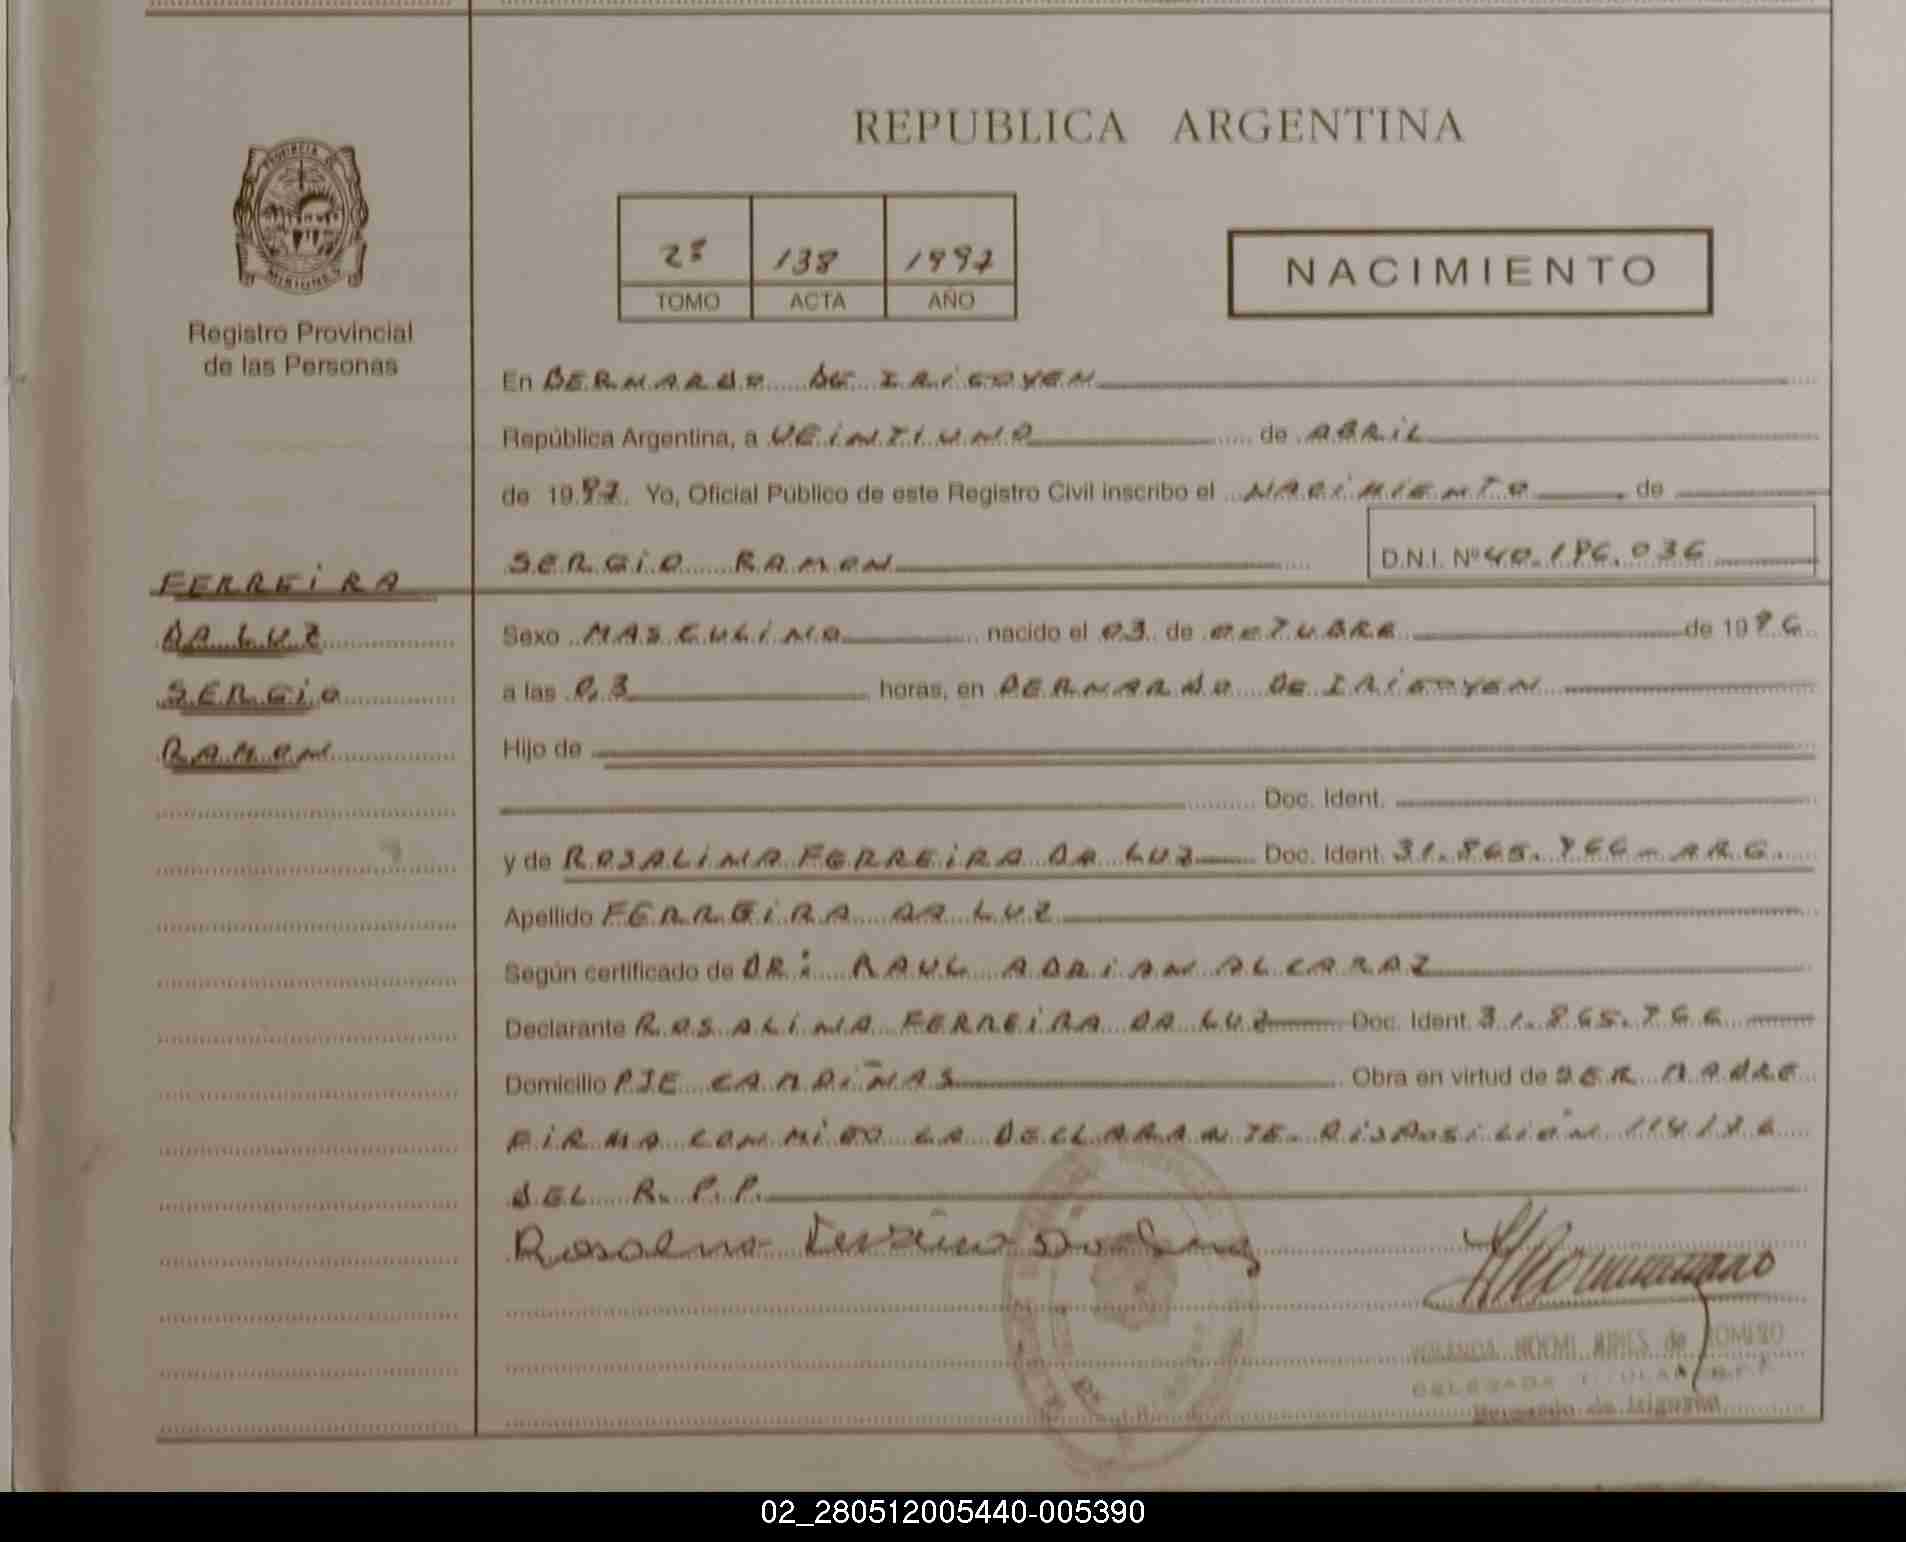 REPUBLICA ARGENTINA
PROVINCIA DE
MISIONES
Registro Provincial
de las Personas
2º 138 1997
TOMO ACTA AÑO
NACIMIENTO
En BERNARDO DE IRIGOYEN
República Argentina, a VEINTIUNO de ABRIL
de 1997. Yo, Oficial Público de este Registro Civil inscribo el NACIMIENTO de
SERGIO RAMON D.N.I. Nº 40.196.036
FERREIRA
DA LUZ
SERGIO
RAMON
Sexo MASCULINO nacido el 03 de OCTUBRE de 1996
a las 03 horas, en BERNARDO DE IRIGOYEN
Hijo de
Doc. Ident.
y de ROSALINA FERREIRA DA LUZ Doc. Ident. 31.865.766 - ARG.
Apellido FERREIRA DA LUZ
Según certificado de DR: RAUL ADRIAN ALCARAZ
Declarante ROSALINA FERREIRA DA LUZ Doc. Ident. 31.865.766
Domicilio PJE CARDIÑAS Obra en virtud de SER MADRE
FIRMA CONMIGO LA DECLARANTE. DISPOSICIÓN
DEL R.P.P.
NOEMI de ROMERO
DELEGADA
Bernardo de Irigoyen
02_280512005440-005390